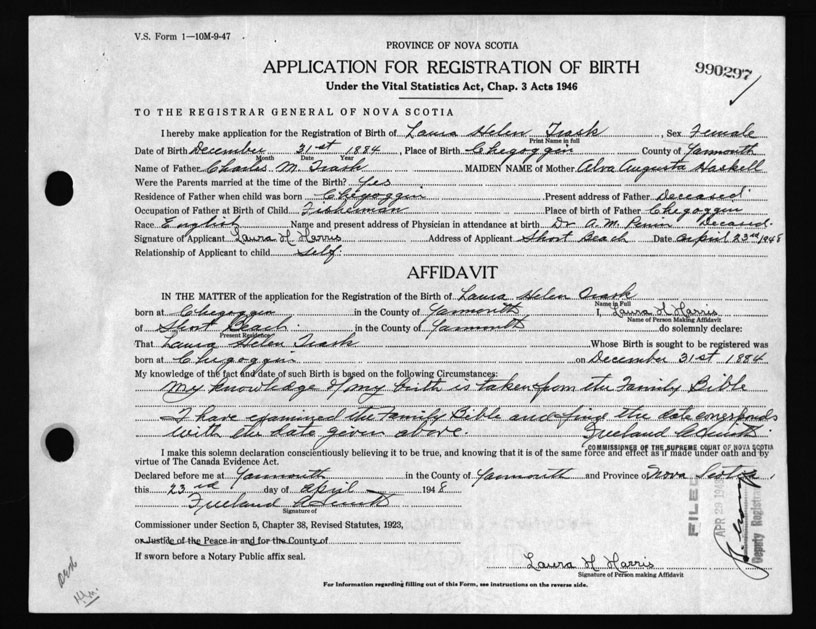 V.S. Form 1—10M-9-47
PROVINCE OF NOVA SCOTIA
APPLICATION FOR REGISTRATION OF BIRTH
990297
Under the Vital Statistics Act, Chap. 3 Acts 1946
TO THE REGISTRAR GENERAL OF NOVA SCOTIA
I hereby make application for the Registration of Birth of Laura Helen Trask, Sex Female
Print Name in full
Date of Birth December 31st 1884, Place of Birth Chegoggin County of Yarmouth
Month Date Year
Name of Father Charles M. Trask MAIDEN NAME of Mother Alva Augusta Haskell
Were the Parents married at the time of the Birth? Yes
Residence of Father when child was born Chegoggin Present address of Father Deceased
Occupation of Father at Birth of Child Fisherman Place of birth of Father Chegoggin
Race English Name and present address of Physician in attendance at birth Dr A. M. Deceased
Signature of Applicant Laura H Harris Address of Applicant Short Beach Date April 23rd 1948
Relationship of Applicant to child Self.
AFFIDAVIT
IN THE MATTER of the application for the Registration of the Birth of Laura Helen Trask
Name in Full
born at Chegoggin in the County of Yarmouth I, Laura H Harris
Name of Person Making Affidavit
of Short Beach in the County of Yarmouth do solemnly declare:
Present Residence
That Laura Helen Trask Whose Birth is sought to be registered was
born at Chegoggin on December 31st 1884
My knowledge of the fact and date of such Birth is based on the following Circumstances:
My knowledge of my birth is taken from the Family Bible
I have examined the Family Bible and find the date corresponds
with the date given above. Freeland
COMMISSIONER OF THE SUPREME COURT OF NOVA SCOTIA
I make this solemn declaration conscientiously believing it to be true, and knowing that it is of the same force and effect as if made under oath and by
virtue of The Canada Evidence Act.
Declared before me at Yarmouth in the County of Yarmouth and Province of Nova Scotia,
this 23rd day of April 1948
Freeland
Signature of
Commissioner under Section 5, Chapter 38, Revised Statutes, 1923,
or Justice of the Peace in and for the County of
If sworn before a Notary Public affix seal.
FILED
APR 28 1948
Deputy Registrar
Laura H Harris
Signature of Person making Affidavit
For Information regarding filling out of this Form, see instructions on the reverse side.